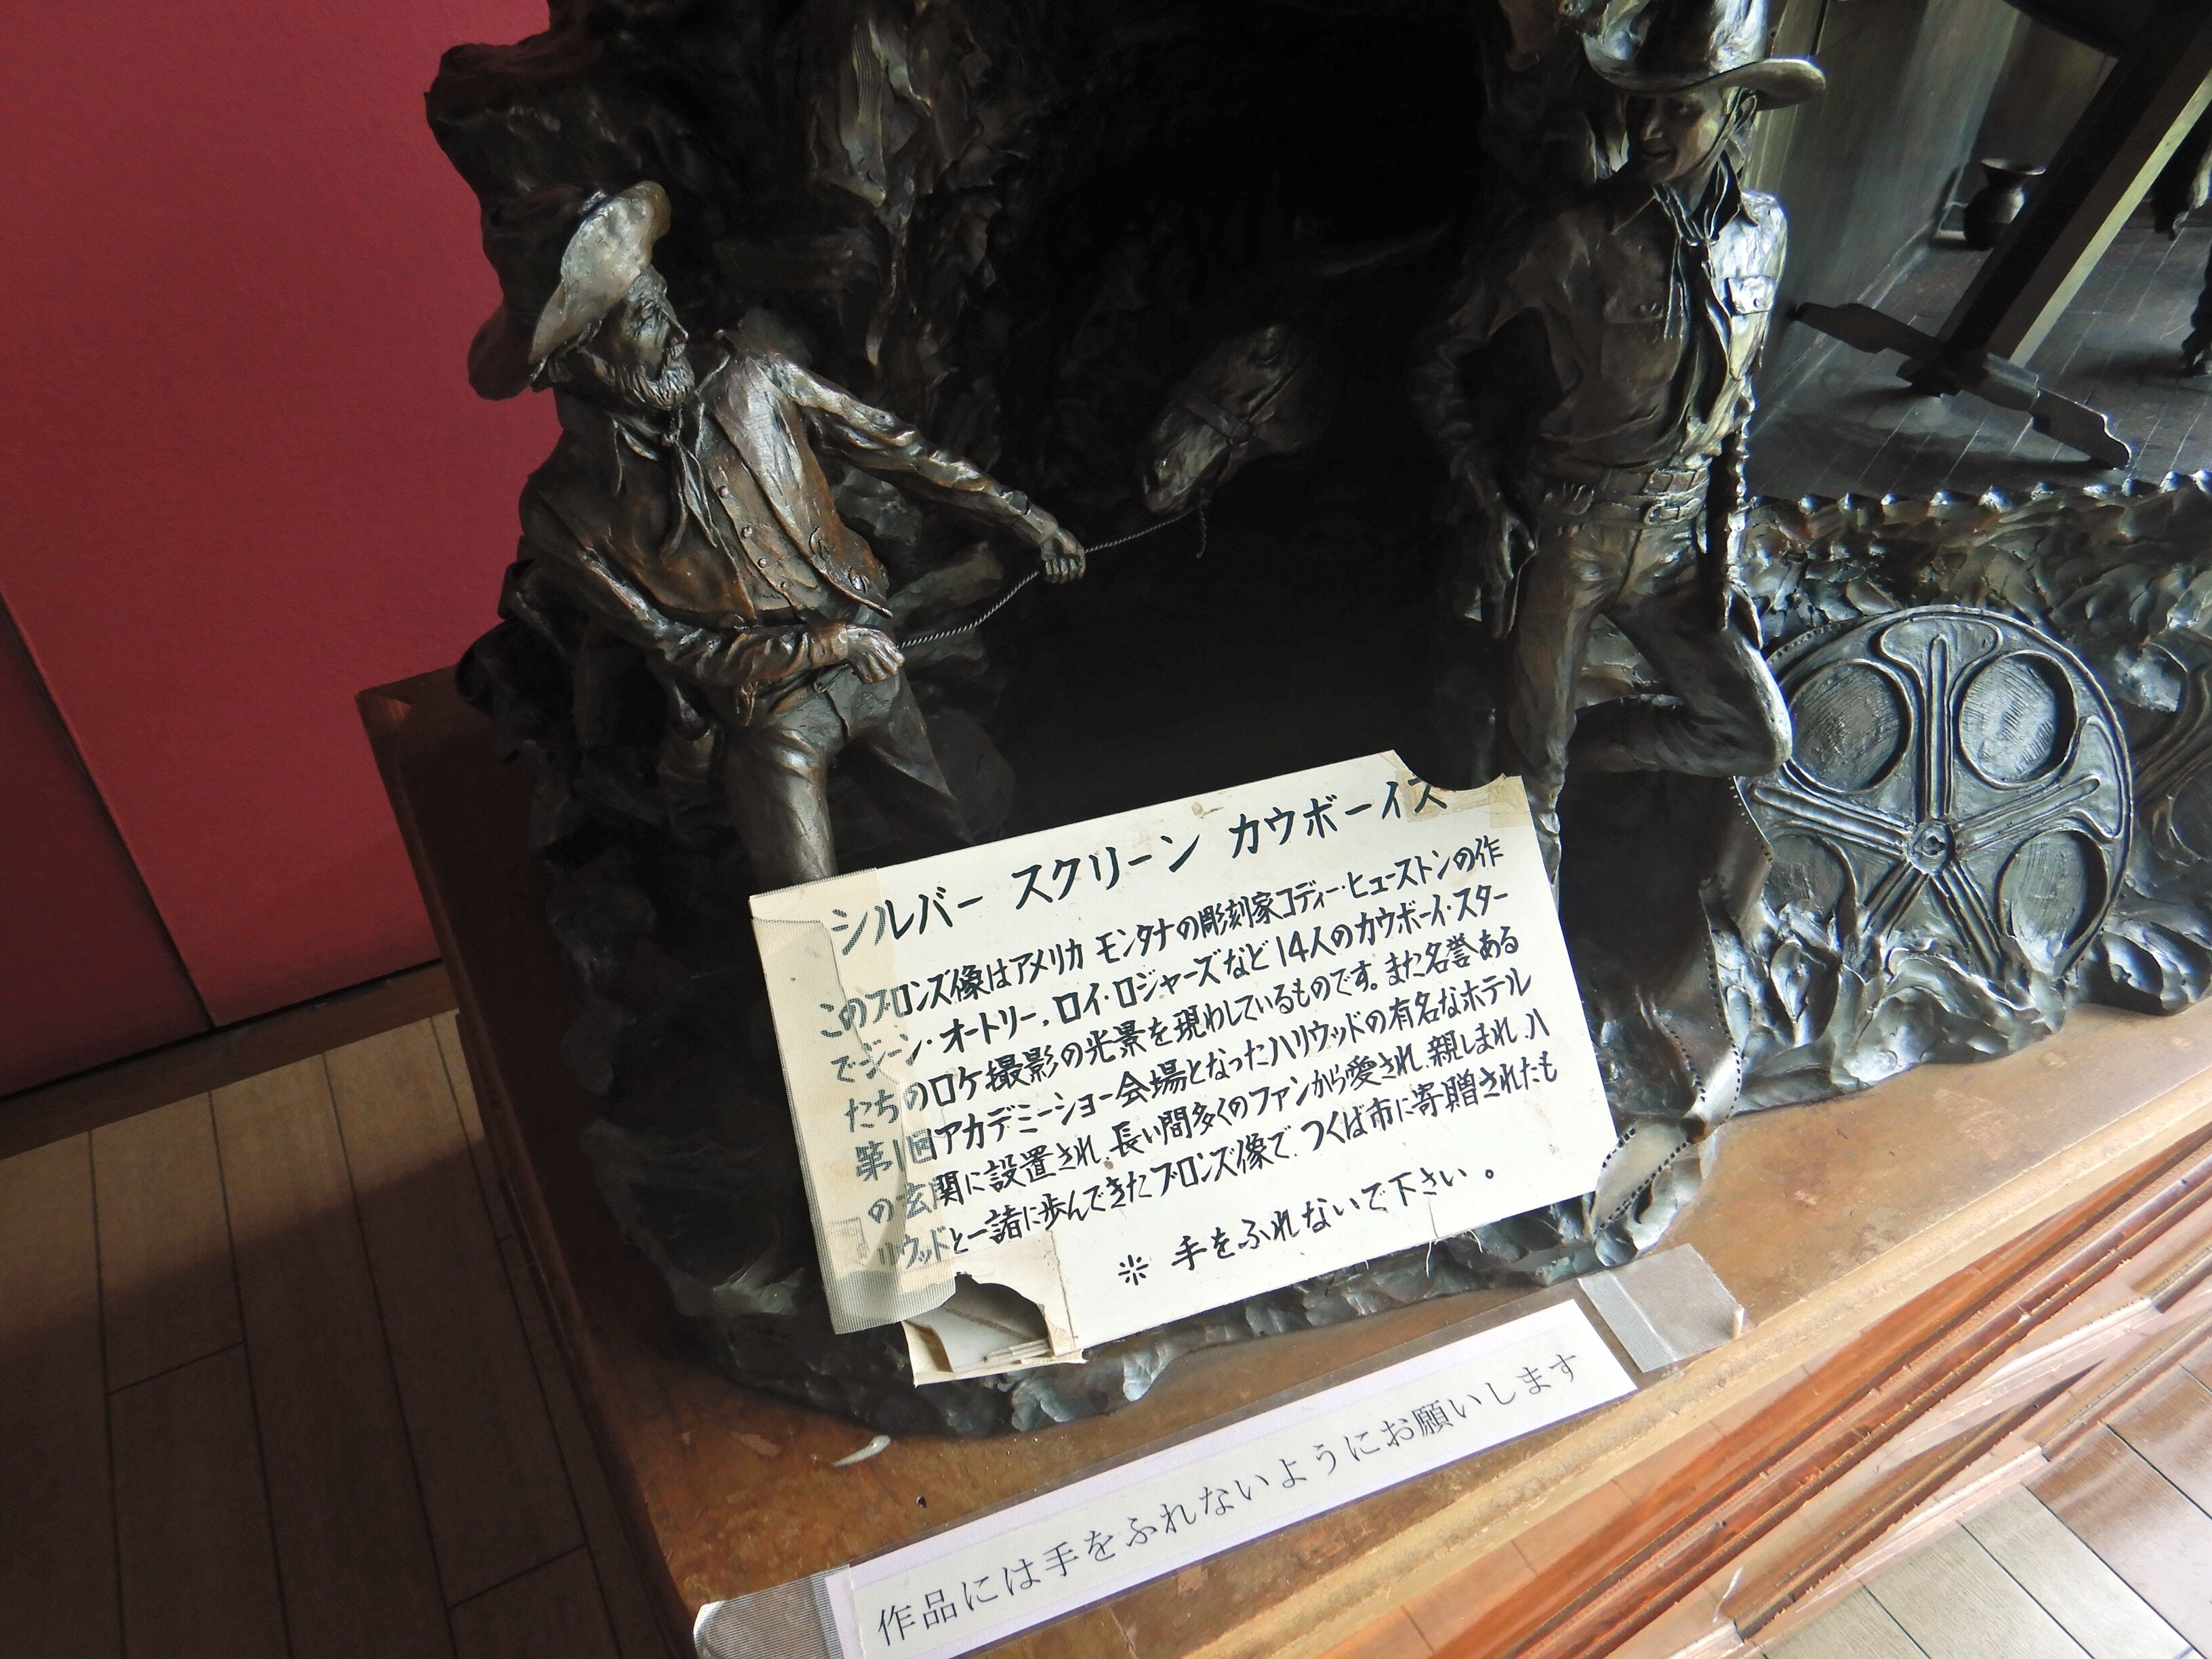 シルバー スクリーン カウボーイズ
このブロンズ像はアメリカ モンタナの彫刻家コディー・ヒューストンの作
でジーン・オートリー、ロイ・ロジャーズなど14人のカウボーイ・スター
たちのロケ撮影の光景を現わしているものです。また名誉ある
第1回アカデミーショー会場となったハリウッドの有名なホテル
の玄関に設置され、長い間多くのファンから愛され、親しまれ、ハ
リウッドと一諸に歩んできたブロンズ像で、つくば市に寄贈されたも
※ 手をふれないで下さい。
作品には手をふれないようにお願いします